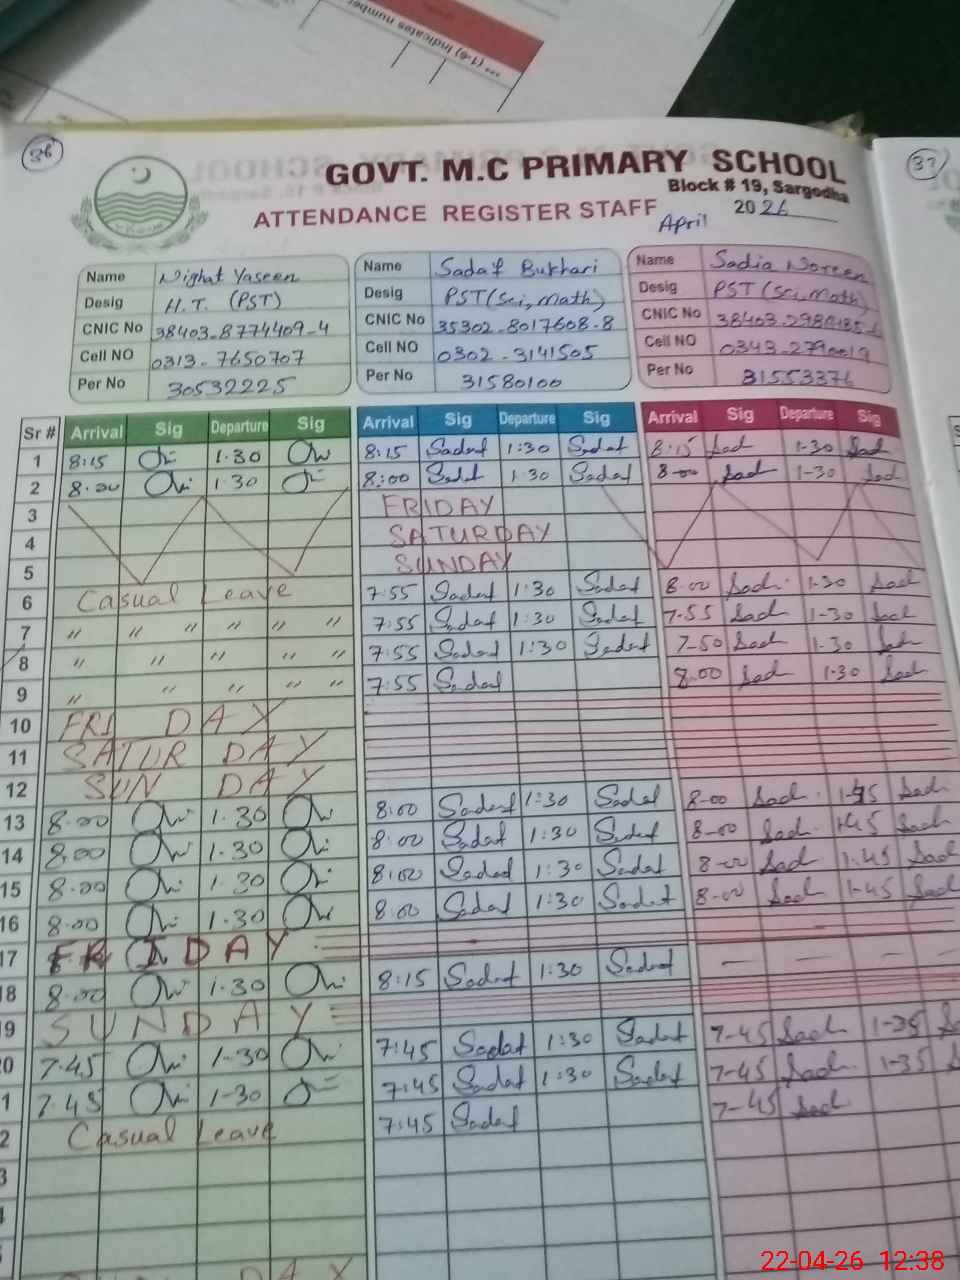 *** (1-6) indicates number
36
37
GOVT. M.C PRIMARY SCHOOL
Block # 19, Sargodha
ATTENDANCE REGISTER STAFF
April
2026
Name Nighat Yaseen
Desig H.T. (PST)
CNIC No 38403-8774409-4
Cell NO 0313-7650707
Per No 30532225
Name Sadaf Bukhari
Desig PST (Sci, math)
CNIC No 35302-8017608-8
Cell NO 0302-3141505
Per No 31580100
Name Sadia Noreen
Desig PST (Sci, math)
CNIC No
Cell NO 0343-2790019
Per No 31553376
Sr # Arrival Sig Departure Sig Arrival Sig Departure Sig Arrival Sig Departure Sig
1 8:15 1.30 8:15 Sadaf 1:30 Sadaf 8:15 Sad 1-30 Sad
2 8.00 1.30 8:00 Sadaf 1:30 Sadaf 8-00 Sad 1-30 Sad
3 FRIDAY
4 SATURDAY
5 SUNDAY
6 Casual Leave 7:55 Sadaf 1:30 Sadaf 8-00 Sad 1-30 Sad
7 " " " " " " 7:55 Sadaf 1:30 Sadaf 7-55 Sad 1-30 Sad
8 " " " " " " 7:55 Sadaf 1:30 Sadaf 7-50 Sad 1-30 Sad
9 " " " " " 7:55 Sadaf 8.00 Sad 1-30 Sad
10 FRI DAY
11 SATUR DAY
12 SUN DAY
13 8.00 1.30 8:00 Sadaf 1:30 Sadaf 8-00 Sad 1-45 Sad
14 8.00 1.30 8:00 Sadaf 1:30 Sadaf 8-00 Sad 1-45 Sad
15 8.00 1.30 8:00 Sadaf 1:30 Sadaf 8-00 Sad 1.45 Sad
16 8.00 1.30 8:00 Sadaf 1:30 Sadaf 8-00 Sad 1-45 Sad
17 FRIDAY
18 8.00 1.30 8:15 Sadaf 1:30 Sadaf — — — —
19 SUNDAY
20 7.45 1-30 7:45 Sadaf 1:30 Sadaf 7-45 Sad 1-35
1 7.45 1-30 7:45 Sadaf 1:30 Sadaf 7-45 Sad 1-35
2 Casual Leave 7:45 Sadaf 7-45 Sad
3
DAY
22-04-26 12:38